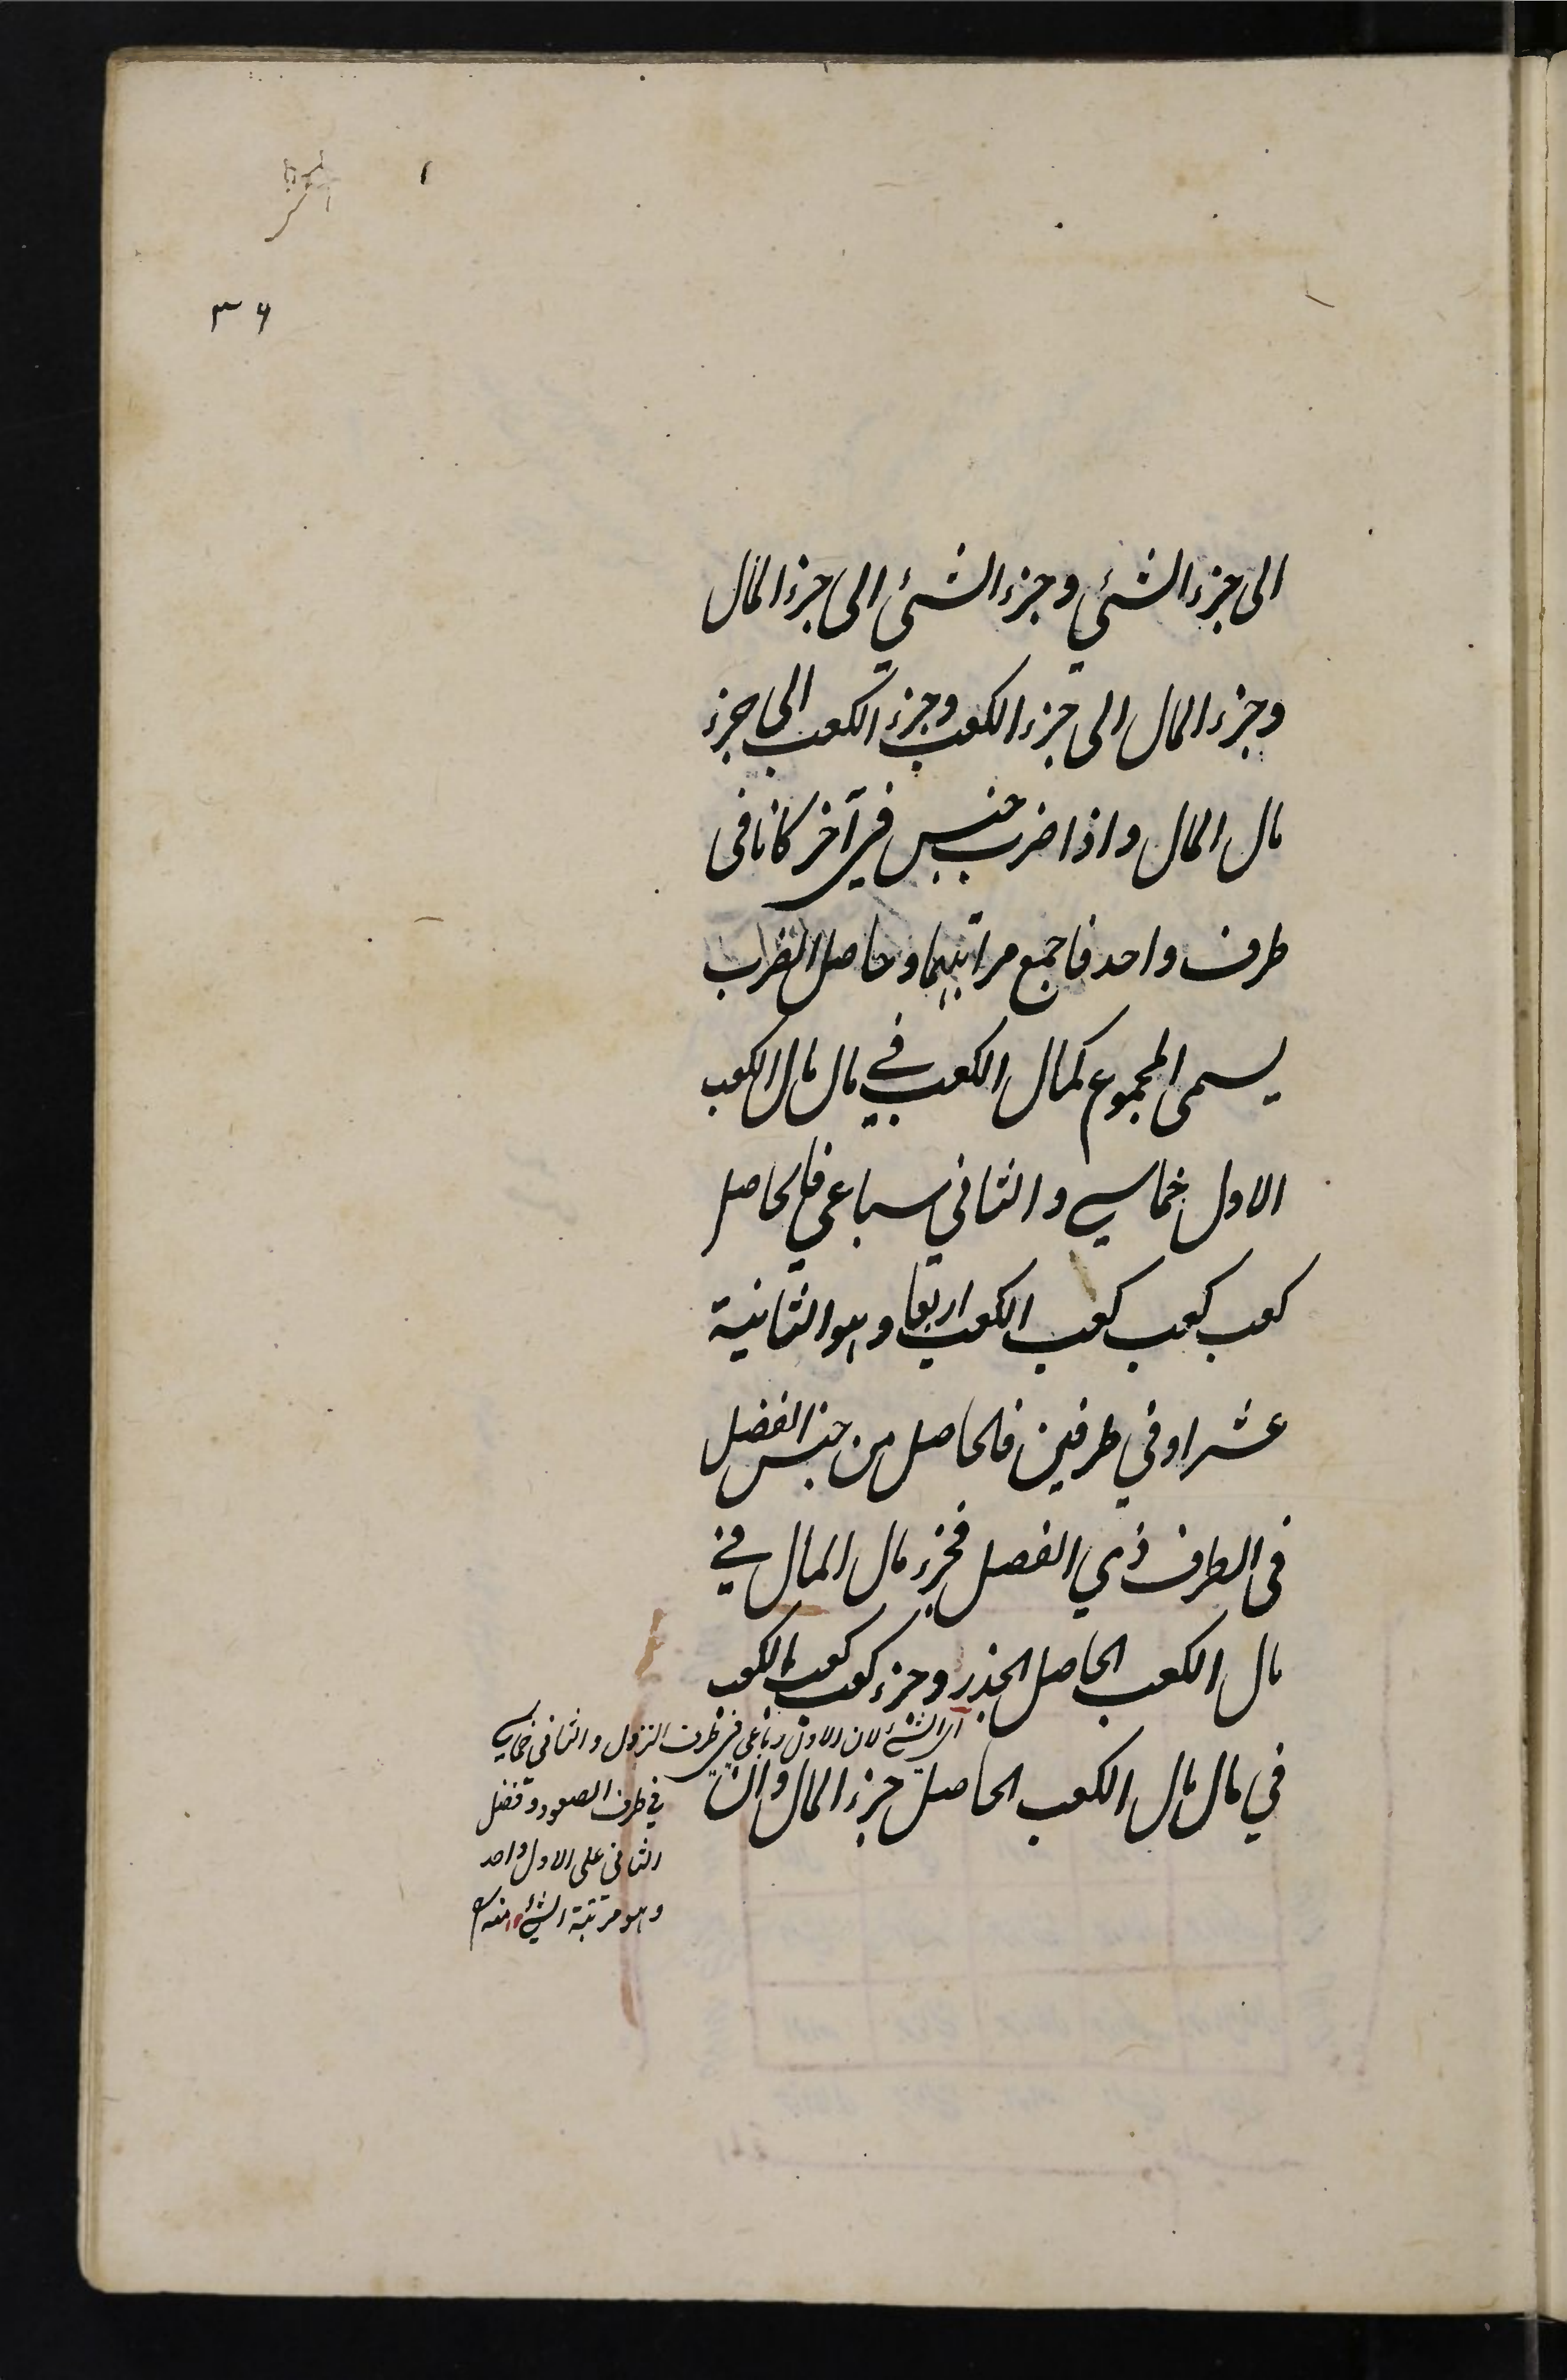 ٣٦
الى جزء الشئي وجزء الشئي الى جزء المال
وجزء المال الى جزء الكعب وجزء الكعب الى جزء
مال المال واذا ضرب جنس في آخر كانا فى
طرف واحد فاجمع مراتبهما وحاصل الضرب
يسمى المجموع كمال الكعب في مال مال الكعب
الاول خماسي والثاني سباعي فالحاصل
كعب كعب كعب الكعب اربعا وهو الثانية
عشر او في طرفين فالحاصل من جنس الفضل
فى الطرف ذي الفضل فجزء مال المال في
مال الكعب الحاصل الجذر وجزء كعب كعب الكعب
في مال مال الكعب الحاصل جزء المال وان
اى الشئ لان الاول رباعى فى طرف النزول والثانى خماسي
في طرف الصعود وفضل
الثانى على الاول واحد
وهو مرتبة الشئ منه